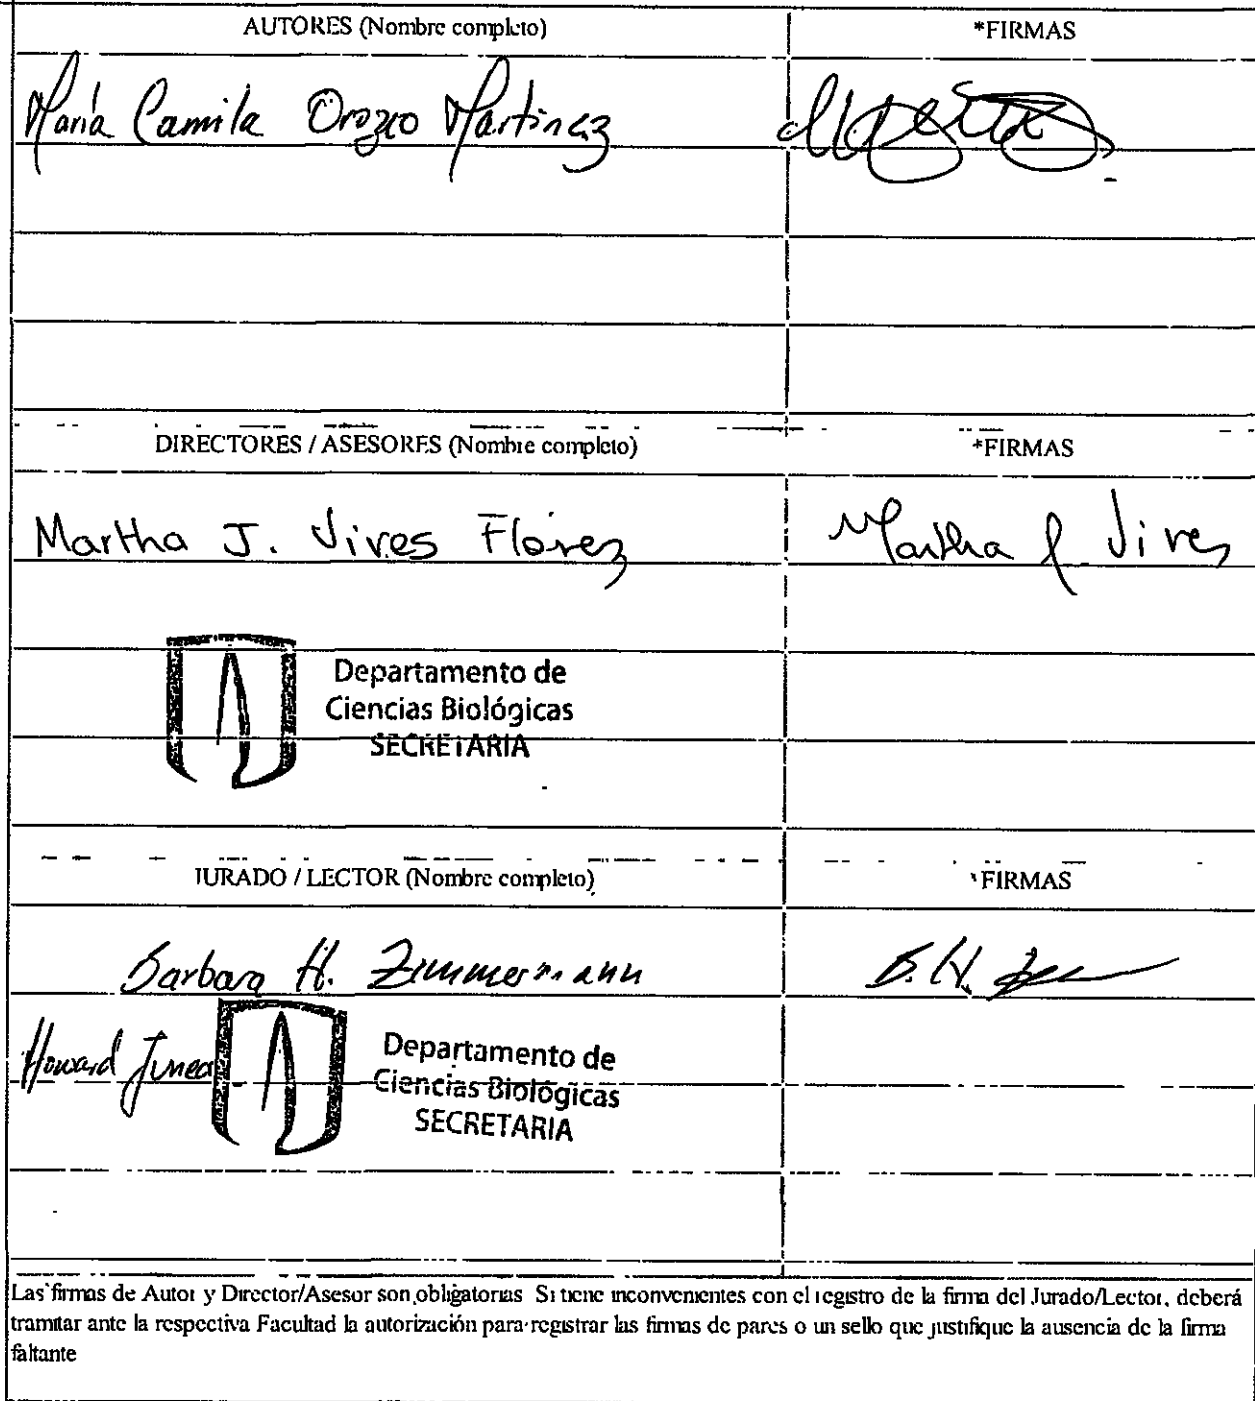 AUTORES (Nombre completo) *FIRMAS
María Camila Orozco Martinez
DIRECTORES / ASESORES (Nombre completo) *FIRMAS
Martha J. Vives Florez Martha J Vives
Departamento de
Ciencias Biológicas
SECRETARIA
JURADO / LECTOR (Nombre completo) *FIRMAS
Barbara H. Zimmermann B.H.
Howard Junca
Departamento de
Ciencias Biológicas
SECRETARIA
Las firmas de Autor y Director/Asesor son obligatorias Si tiene inconvenientes con el registro de la firma del Jurado/Lector, deberá
tramitar ante la respectiva Facultad la autorización para registrar las firmas de pares o un sello que justifique la ausencia de la firma
faltante